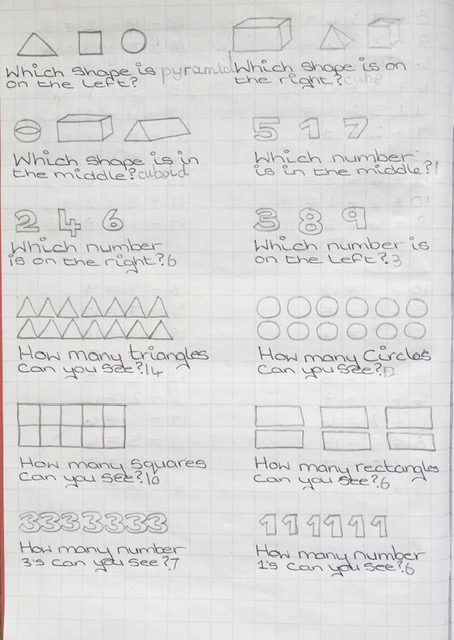 Which shape is pyramid
on the left?
Which shape is on
the right? cube
Which shape is in
the middle? cuboid
5 1 7
Which number
is in the middle? 1
2 4 6
Which number
is on the right? 6
3 8 9
Which number is
on the left? 3
How many triangles
can you see? 14
How many circles
can you see? 12
How many squares
can you see? 10
How many rectangles
can you see? 6
3333333
How many number
3's can you see? 7
111111
How many number
1's can you see? 6